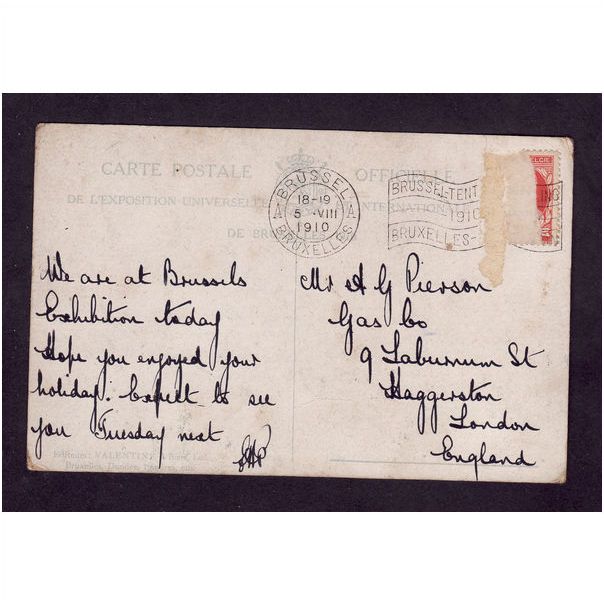 CARTE POSTALE OFFICIELLE
DE L'EXPOSITION UNIVERSELLE INTERNATIONALE
DE BRUXELLES
BRUSSEL
18-19
5 VIII
1910
BRUXELLES
A A
BRUSSEL-TENT ING
1910
BRUXELLES-
ELGIE
We are at Brussels
Exhibition today
Hope you enjoyed your
holiday. Expect to see
you Tuesday next
Mr A G Pierson
Gas Co
9 Laburnum St
Haggerston
London
England
Editeurs: VALENTINE & Sons, Ltd.
Bruxelles, Dundee,